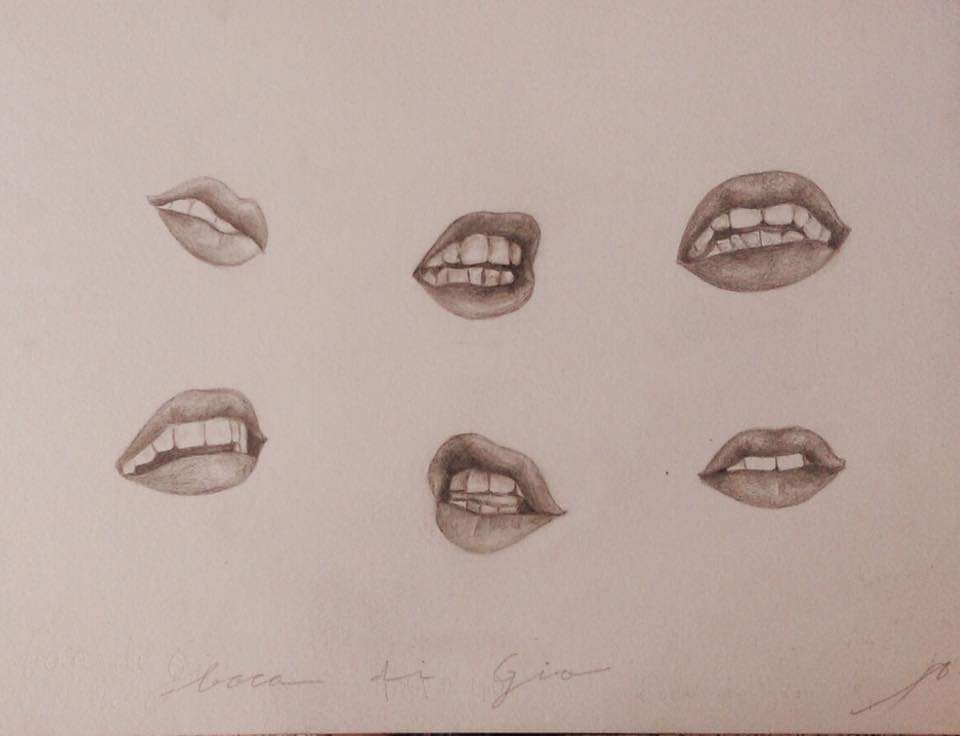 boca di Gio